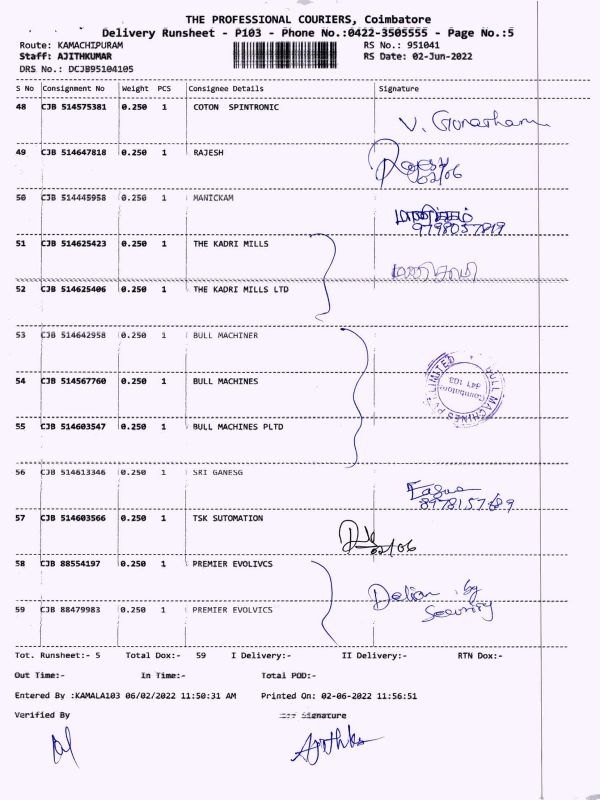 THE PROFESSIONAL COURIERS, Coimbatore
Delivery Runsheet - P103 - Phone No.:0422-3505555 - Page No.:5
Route: KAMACHIPURAM RS No.: 951041
Staff: AJITHKUMAR RS Date: 02-Jun-2022
DRS No.: DCJB95104105
S No Consignment No Weight PCS Consignee Details Signature
48 CJB 514575381 0.250 1 COTON SPINTRONIC
49 CJB 514647818 0.250 1 RAJESH
02/06
50 CJB 514445958 0.250 1 MANICKAM
51 CJB 514625423 0.250 1 THE KADRI MILLS
52 CJB 514625406 0.250 1 THE KADRI MILLS LTD
53 CJB 514642958 1 BULL MACHINER
54 CJB 514567760 0.250 1 BULL MACHINES
BULL MACHINES PVT LIMITED
Coimbatore
641 103
55 CJB 514603547 0.250 1 BULL MACHINES PLTD
56 CJB 514613346 0.250 1 SRI GANESG
57 CJB 514603566 0.250 1 TSK SUTOMATION
02/06
58 CJB 88554197 0.250 1 PREMIER EVOLIVCS
by
Security
59 CJB 88479983 0.250 1 PREMIER EVOLVICS
Tot. Runsheet:- 5 Total Dox:- 59 I Delivery:- II Delivery:- RTN Dox:-
Out Time:- In Time:- Total POD:-
Entered By :KAMALA103 06/02/2022 11:50:31 AM Printed On: 02-06-2022 11:56:51
Verified By Signature